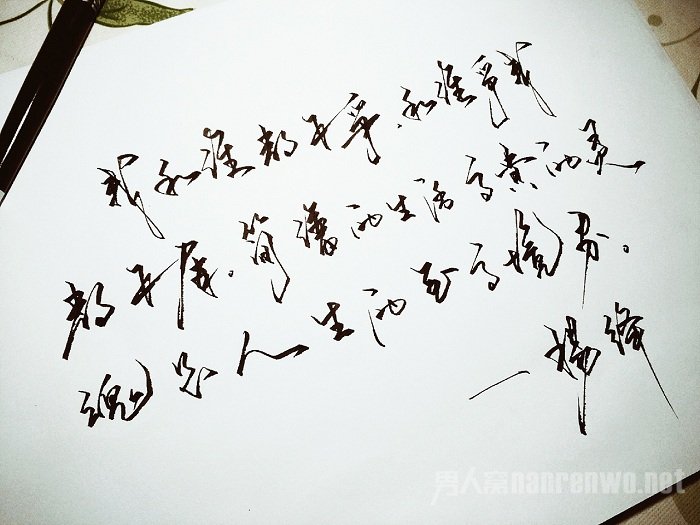 我和谁都不争，和谁争我
都不屑。简樸的生活高贵的灵
魂是人生的至高境界。
—楊绛
男人窝nanrenwo.net